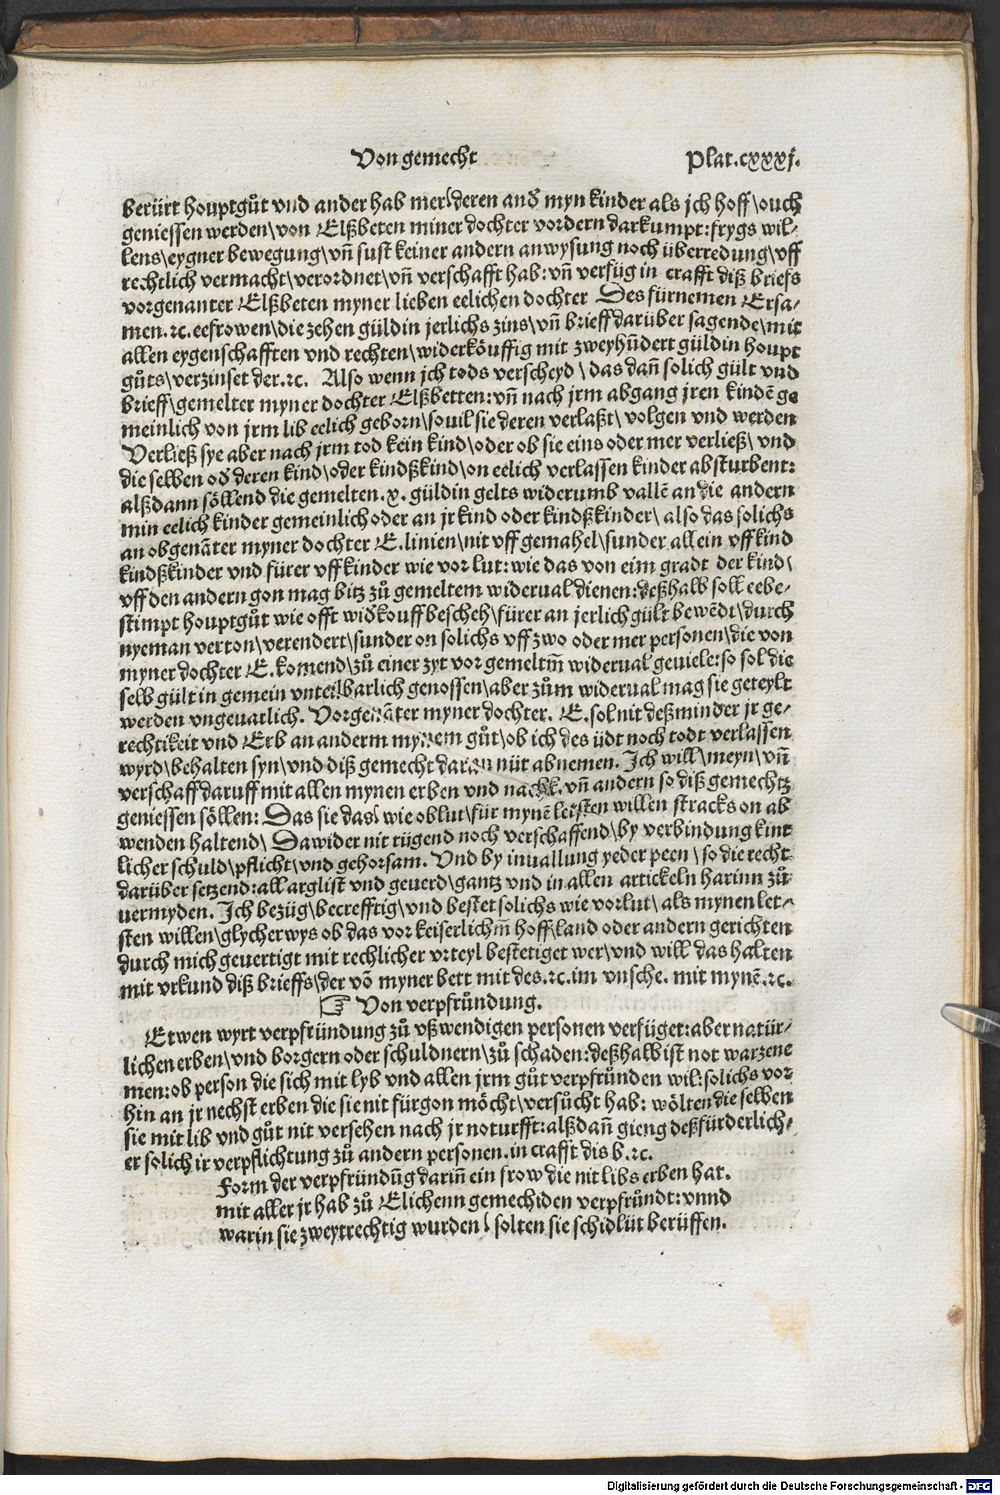 Von gemecht Plat.cxxxj.
berürt houptgůt vnd ander hab mer\deren and̕ myn kinder als jch hoff\ouch
geniessen werden\von Elßbeten miner dochter vordern darkumpt:frygs wil-
lens\eygner bewegung\vn̄ sust keiner andern anwysung noch überredung\vff
rechtlich vermacht\verordnet\vn̄ verschafft hab:vn̄ verfüg in crafft diß briefs
vorgenanter Elßbeten myner lieben eelichen dochter Des fürnemen Ersa-
men.ꝛc.eefrowen\die zehen güldin jerlichs zins\vn̄ brieff darüber sagende\mit
allen eygenschafften vnd rechten\widerköuffig mit zweyhūdert güldin houpt
gůts\verzinset der.ꝛc. Also wenn jch tods verscheyd\das dan̄ solich gült vnd
brieff\gemelter myner dochter Elßbetten:vn̄ nach jrm abgang jren kindē ge
meinlich von jrm lib eelich geborn\souil sie deren verlaßt\volgen vnd werden
Verließ sye aber nach jrm tod kein kind\oder ob sie eins oder mer verließ\vnd
die selben od̕ deren kind\oder kindßkind\on eelich verlassen kinder absturbent:
alßdann söllend die gemelten.x. güldin gelts widerumb vallē an die andern
min eelich kinder gemeinlich oder an jr kind oder kindßkinder\also das solichs
an obgenāter myner dochter E.linien\nit vff gemahel\sunder allein vff kind
kindßkinder vnd fürer vff kinder wie vor lut:wie das von eim gradt der kind\
vff den andern gon mag bitz zů gemeltem widerual dienen:deßhalb soll eebe-
stimpt houptgůt wie offt wid̕kouff bescheh\fürer an jerlich gült bewēdt\durch
nyeman verton\verendert\sunder on solichs vff zwo oder mer personen\die von
myner dochter E.komend\zů einer zyt vor gemeltm̄ widerual geuiele:so sol die
selb gült in gemein vnteilbarlich genossen\aber zům widerual mag sie geteylt
werden vngeuarlich. Vorgenāter myner dochter. E.sol nit deßminder jr ge-
rechtikeit vnd Erb an anderm mynem gůt\ob ich des üdt noch todt verlassen
wyrd\behalten syn\vnd diß gemecht daran nüt abnemen. Ich will\meyn\vn̄
verschaff daruff mit allen mynen erben vnd nachk.vn̄ andern so diß gemechtz
geniessen söllen: Das sie das\wie oblut\für mynē letsten willen stracks on ab
wenden haltend\ Dawider nit tügend noch verschaffend\by verbindung kint
licher schuld\pflicht\vnd gehorsam. Vnd by inuallung yeder peen\so die recht
darüber setzend:all arglist vnd geuerd\gantz vnd in allen artickeln harinn zů
uermyden. Ich bezüg\becrefftig\vnd bestet solichs wie vorlut\als mynen let-
sten willen\glycherwys ob das vor keiserlichm̄ hoff\land oder andern gerichten
durch mich geuertigt mit rechlicher vrteyl bestetiget wer\vnd will das halten
mit vrkund diß brieffs\der vō myner bett mit des.ꝛc.im vnsche. mit mynē.ꝛc.
☞ Von verpfründung.
Etwen wyrt verpfründung zů vßwendigen personen verfüget:aber natür-
lichen erben\vnd borgern oder schuldnern\zů schaden:deßhalb ist not warzene
men:ob person die sich mit lyb vnd allen jrm gůt verpfründen wil:solichs vor
hin an jr nechst erben die sie nit fürgon möcht\versůcht hab: wölten die selben
sie mit lib vnd gůt nit versehen nach jr noturfft:alßdan̄ gieng deßfürderlich-
er solich ir verpflichtung zů andern personen.in crafft dis b.ꝛc.
Form der verpfründūg darin̄ ein frow die nit libs erben hat.
mit aller jr hab zů Elichenn gemechiden verpfründt:vnnd
warin sie zweytrechtig wurden\solten sie schidlüt berüffen.
Digitalisierung gefördert durch die Deutsche Forschungsgemeinschaft - DFG